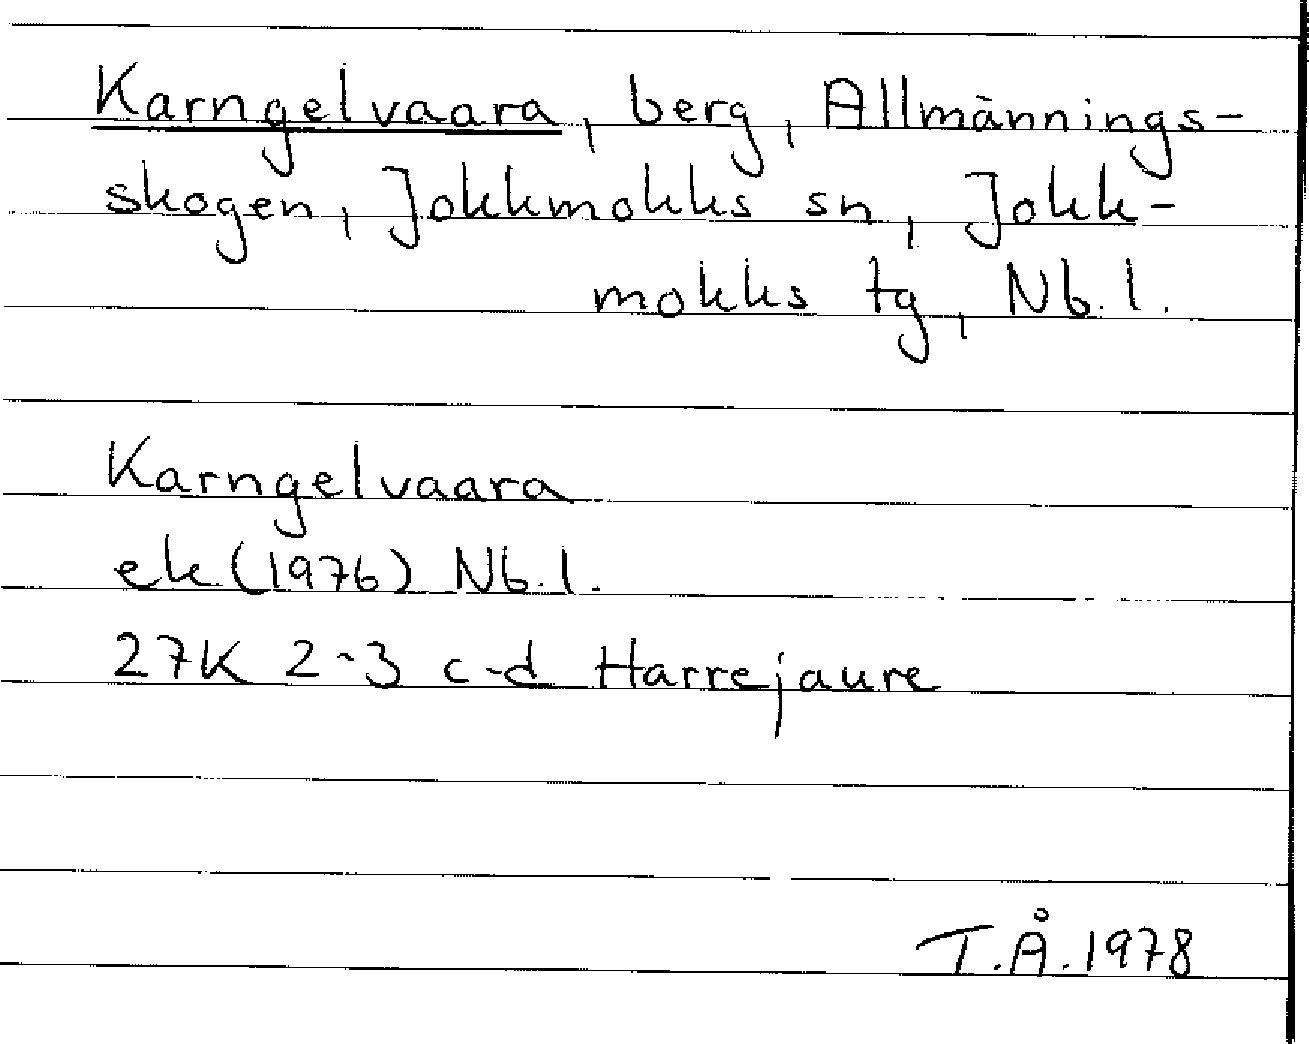 Karngelvaara, berg, Allmännings-
skogen, Jokkmokks sn, Jokk-
mokks tg, Nb. l.
Karngelvaara
ek (1976) Nb. l.
27K 2-3 c-d Harrejaure
T.Å. 1978